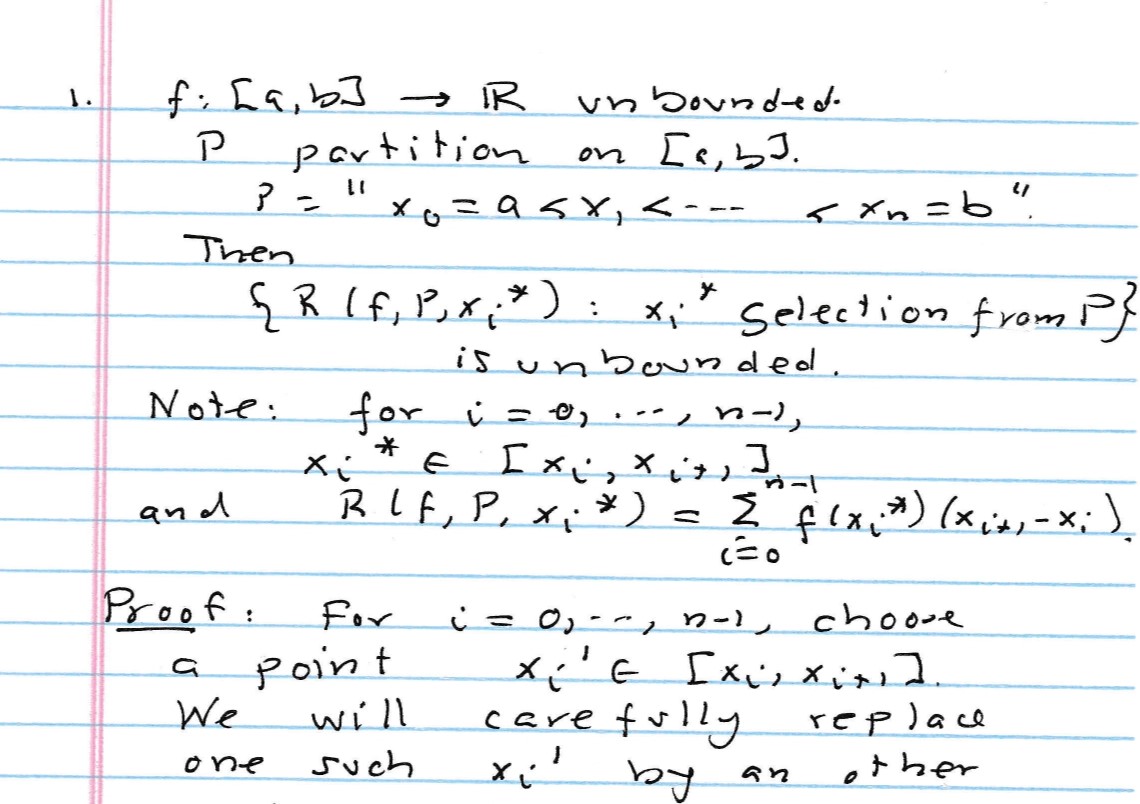 1. f: [a, b] → ℝ unbounded.
P partition on [a, b].
P = " x₀ = a < x₁ < --- < xₙ = b ".
Then
{ R (f, P, xᵢ*) : xᵢ* selection from P}
is unbounded.
Note: for i = 0, ..., n-1,
xᵢ* ∈ [xᵢ, xᵢ₊₁]
and R(f, P, xᵢ*) = Σ_{i=0}^{n-1} f(xᵢ*)(xᵢ₊₁ - xᵢ).
Proof: For i = 0, ---, n-1, choose
a point xᵢ' ∈ [xᵢ, xᵢ₊₁].
We will carefully replace
one such xᵢ' by an other